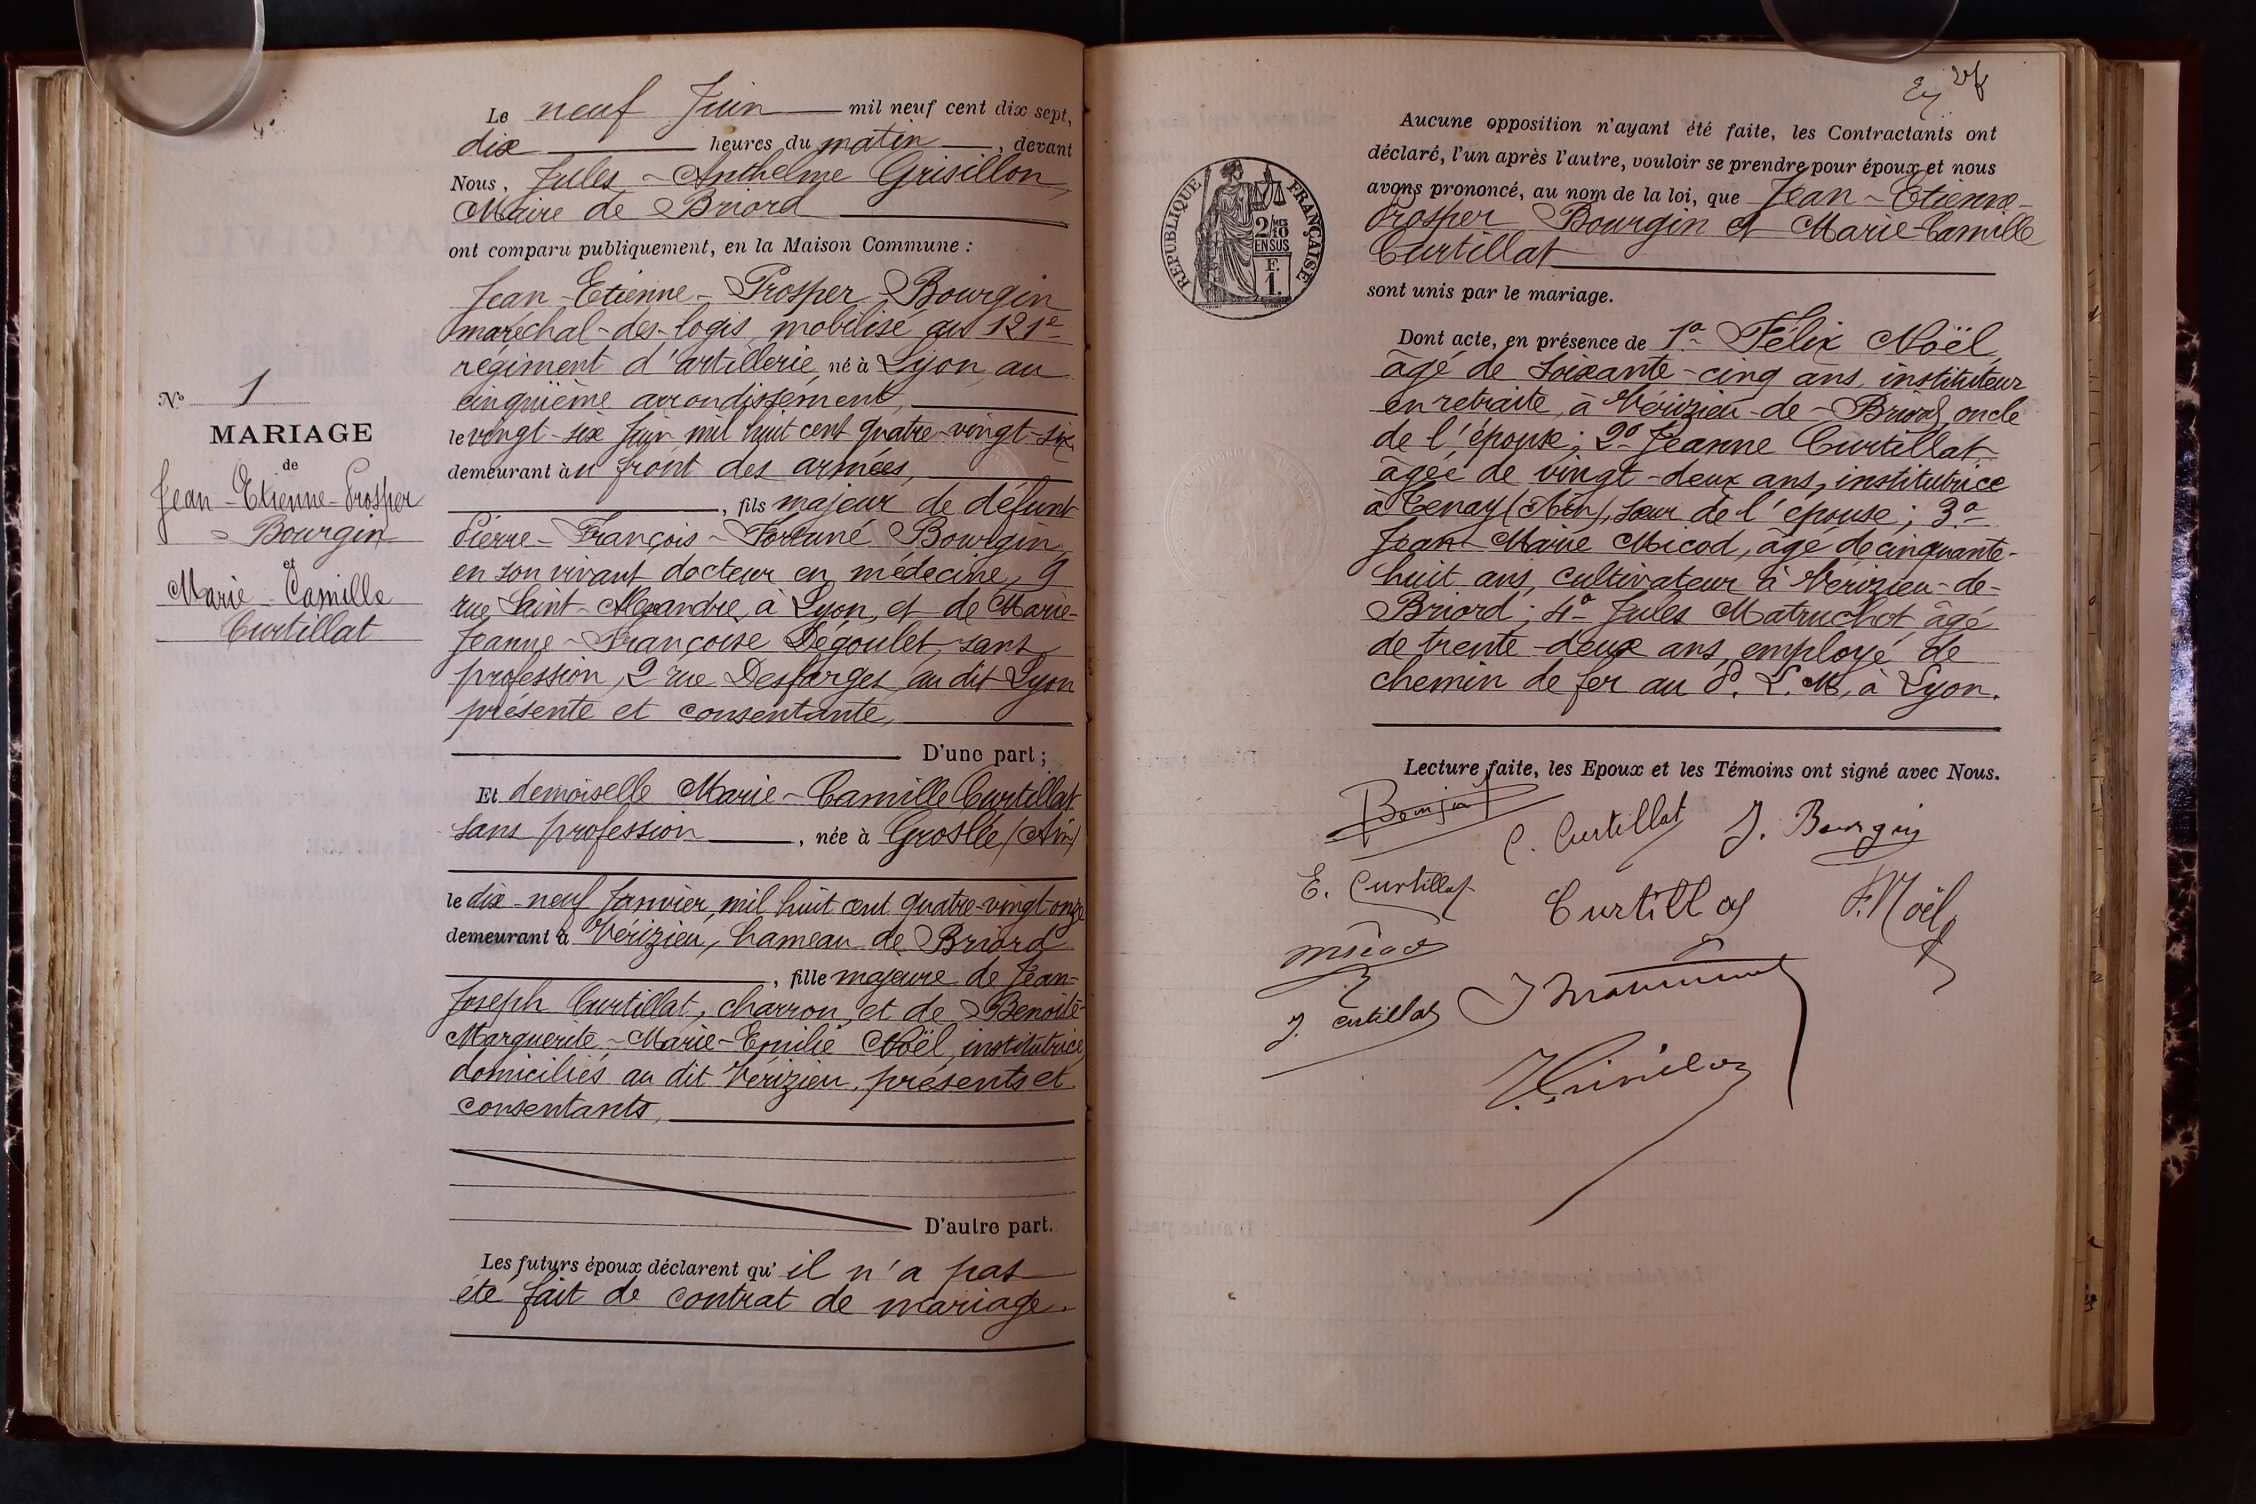 N° 1
MARIAGE
de
Jean-Etienne-Prosper
Bourgin
et
Marie-Camille
Curtillat
Le neuf Juin mil neuf cent dix sept,
dix heures du matin, devant
Nous, Jules-Anthelme Grisillon,
Maire de Briord
ont comparu publiquement, en la Maison Commune :
Jean-Etienne-Prosper Bourgin
maréchal-des-logis mobilisé au 121e
régiment d'artillerie, né à Lyon, au
cinquième arrondissement,
le vingt-six Juin mil huit cent quatre-vingt-six
demeurant au front des armées,
, fils majeur de défunt
Pierre-François-Fortuné Bourgin,
en son vivant docteur en médecine, 9
rue Saint-Alexandre, à Lyon, et de Marie-
Jeanne-Françoise Dégoulet, sans
profession, 2 rue Desfarges, au dit Lyon
présente et consentante,
D'une part ;
Et demoiselle Marie-Camille Curtillat
sans profession, née à Groslée (Ain)
le dix-neuf Janvier, mil huit cent quatre-vingt onze
demeurant à Vérizieu, hameau de Briord
, fille majeure de Jean-
Joseph Curtillat, charron, et de Benoîte-
Marguerite-Marie-Emilie Noël, institutrice,
domiciliés au dit Vérizieu, présents et
consentants,
D'autre part.
Les futurs époux déclarent qu'il n'a pas
été fait de contrat de mariage.
Aucune opposition n'ayant été faite, les Contractants ont
déclaré, l'un après l'autre, vouloir se prendre pour époux et nous
avons prononcé, au nom de la loi, que Jean-Etienne-
Prosper Bourgin et Marie-Camille
Curtillat
sont unis par le mariage.
RÉPUBLIQUE FRANÇAISE
2/10
EN SUS
F.
1.
Dont acte, en présence de 1° Félix Noël,
âgé de soixante-cinq ans, instituteur
en retraite, à Vérizieu-de-Briord, oncle
de l'épouse ; 2° Jeanne Curtillat
âgée de vingt-deux ans, institutrice
à Tenay (Ain), sœur de l'épouse ; 3°
Jean-Marie Micod, âgé de cinquante-
huit ans, cultivateur à Vérizieu-de-
Briord ; 4° Jules Matruchot, âgé
de trente-deux ans, employé de
chemin de fer au P. L. M, à Lyon.
Lecture faite, les Epoux et les Témoins ont signé avec Nous.
Bourgin
C. Curtillat
J. Bourgin
E. Curtillat
Curtillat
F. Noël
Micod
J. Curtillat